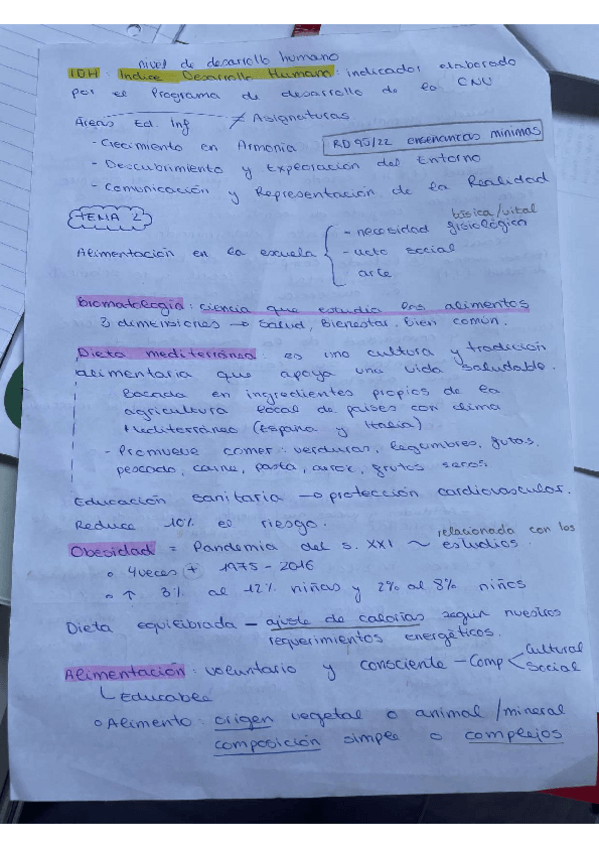 nivel de desarrollo humano
IDH: Indice Desarrollo Humano: indicador elaborado
por el Programa de desarrollo de la CNU
Áreas Ed. Inf ≠ Asignaturas
- Crecimiento en Armonía RD 95/22 enseñanzas mínimas
- Descubrimiento y Exploración del Entorno
- Comunicación y Representación de la Realidad
TEMA 2
básica/vital
- necesidad fisiológica
Alimentación en la escuela { - acto social
arte
Bromatología: ciencia que estudia los alimentos
3 dimensiones → Salud, Bienestar. Bien común.
Dieta mediterránea: es una cultura y tradición
alimentaria que apoya una vida saludable.
Basada en ingredientes propios de la
agricultura local de países con clima
Mediterráneo (España y Italia)
- Promueve comer: verduras, legumbres, frutas,
pescado, carne, pasta, arroz, frutos secos
Educación sanitaria → protección cardiovascular.
Reduce 10% el riesgo.
relacionada con los
Obesidad = Pandemia del s. XXI ~ estudios.
o 4 veces + 1975 - 2016
o ↑ 3% al 12% niñas y 2% al 8% niños
Dieta equilibrada - ajuste de calorías según nuestros
requerimientos energéticos.
Alimentación: voluntario y consciente - Comp < Cultural
Social
↳ Educable
o Alimento: origen vegetal o animal / mineral
composición simple o complejos